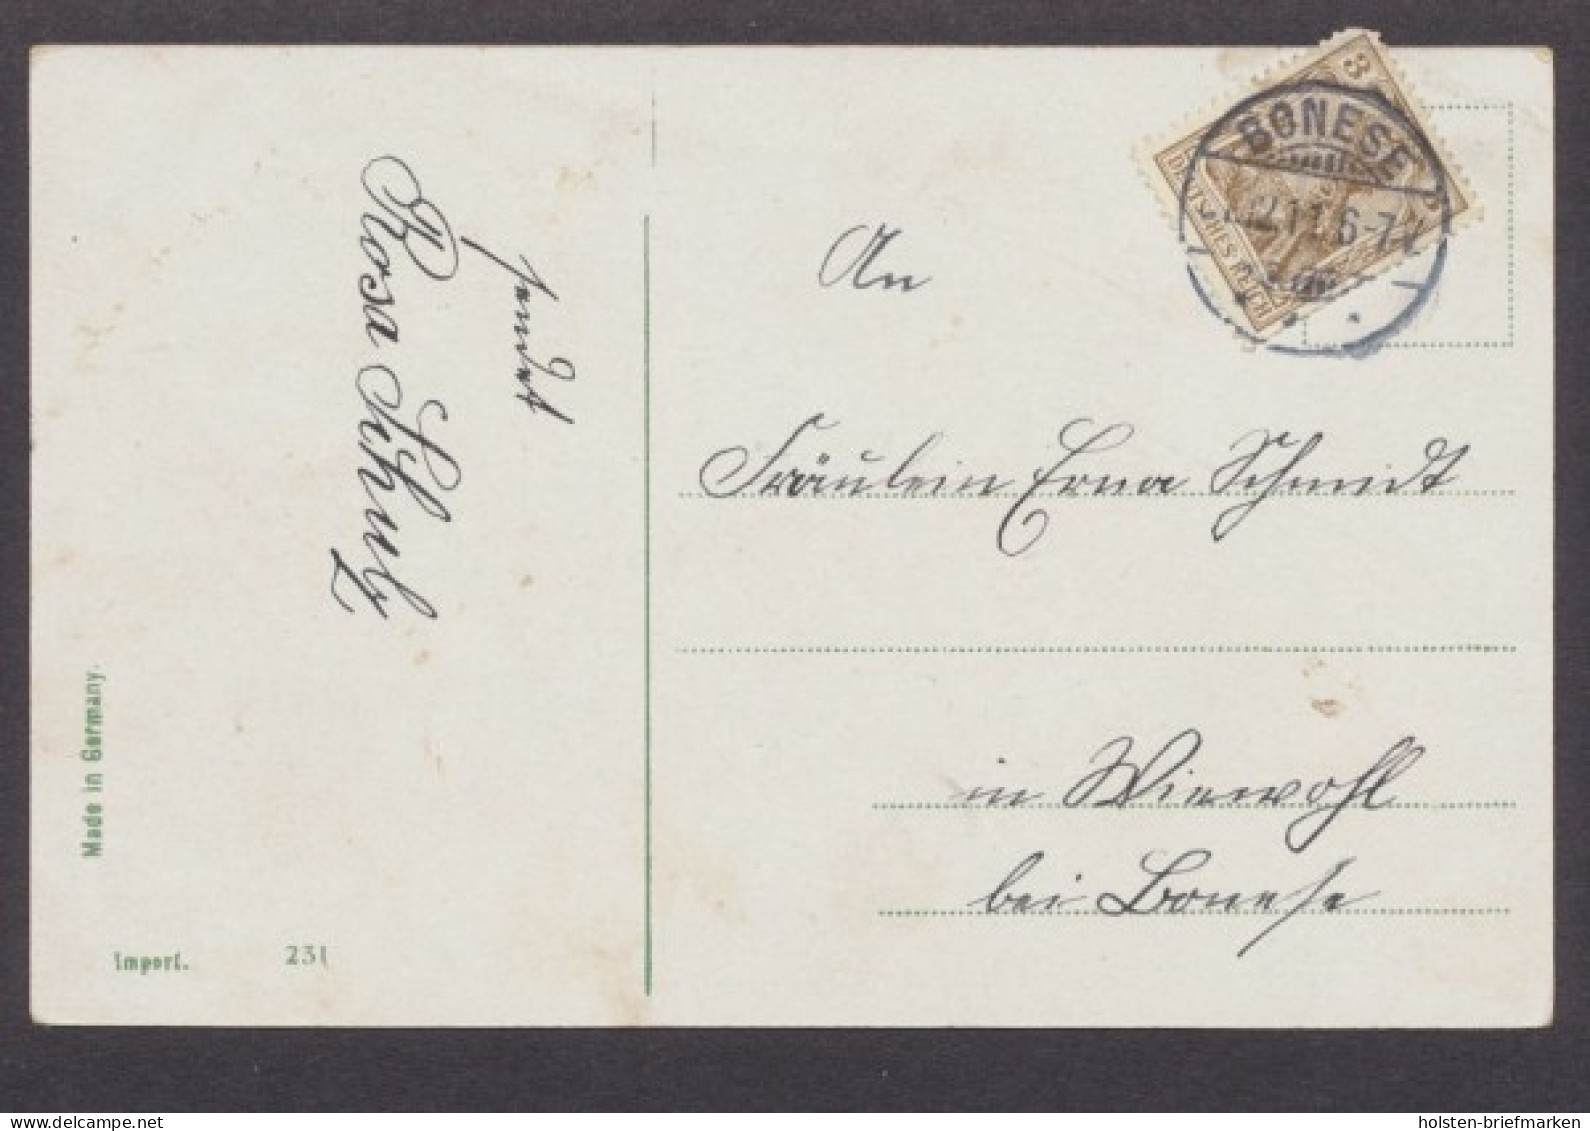 sendet
Rosa Schulz
Made in Germany.
Import. 231
3
DEUTSCHES REICH
BONESE
12.11.6-7
An
Fräulein Erna Schmidt
in Wiewohl
bei Bonese
www.delcampe.net
holsten-briefmarken